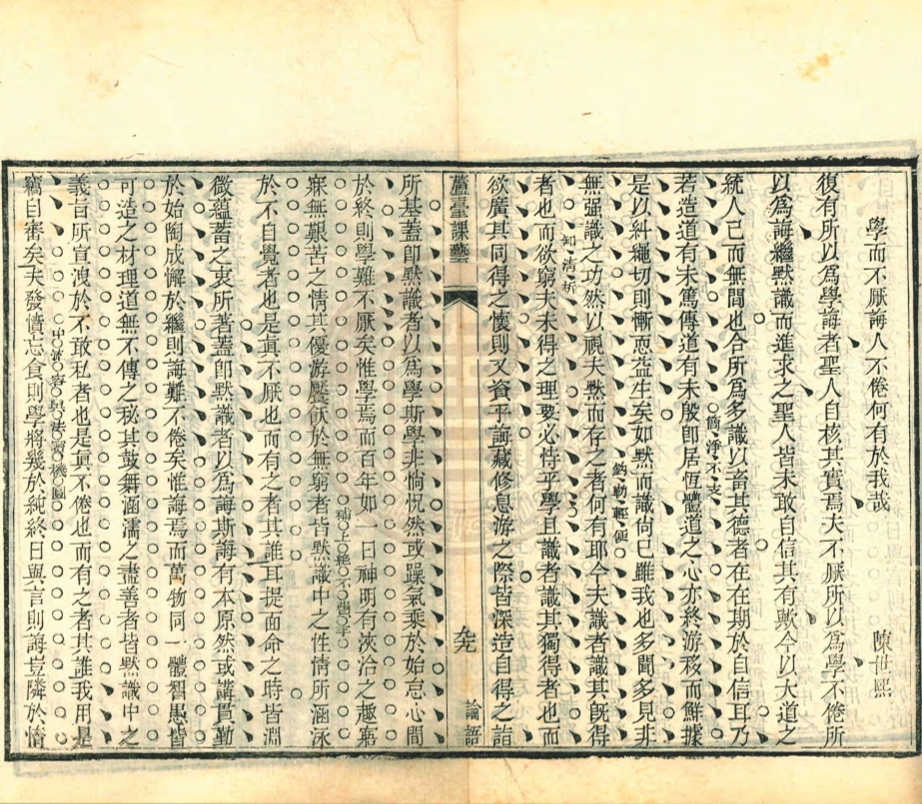 學而不厭誨人不倦何有於我哉
陳世熙
復有所以為學誨者聖人自核其實焉夫不厭所以為學不倦所
以為誨繼默識而進求之聖人皆未敢自信其有歟今以大道之
統人己而無間也合所為多識以畜其德者在在期於自信耳乃
簡淨不支
若造道有未篤傳道有未殷即居恆體道之心亦終游移而鮮據
是以糾繩切則慚恧益生矣如默而識尚已雖我也多聞多見非
鈎勒輕便
無强識之功然以視夫默而存之者何有耶今夫識者識其旣得
卸清析
者也而欲窮夫未得之理要必恃乎學且識者識其獨得者也而
欲廣其同得之懷則又資乎誨藏修息游之際皆深造自得之詣
蘆臺課藝
九
論語
所基蓋卽默識者以為學斯學非惝怳然或躁氣乘於始怠心間
於終則學難不厭矣惟學焉而百年如一日神明有浹洽之趣寤
補上絕不費手
寐無艱苦之情其優游饜飫於無窮者皆默識中之性情所涵泳
於不自覺者也是真不厭也而有之者其誰耳提面命之時皆淵
微蘊蓄之衷所著蓋卽默識者以為誨斯誨有本原然或講貫勤
於始陶成懈於繼則誨難不倦矣惟誨焉而萬物同一體智愚皆
可造之材理道無不傳之秘其鼓舞涵濡之盡善者皆默識中之
義旨所宣洩於不敢私者也是真不倦也而有之者其誰我用是
竊自審矣夫發憤忘食則學將幾於純終日與言則誨豈隣於惰